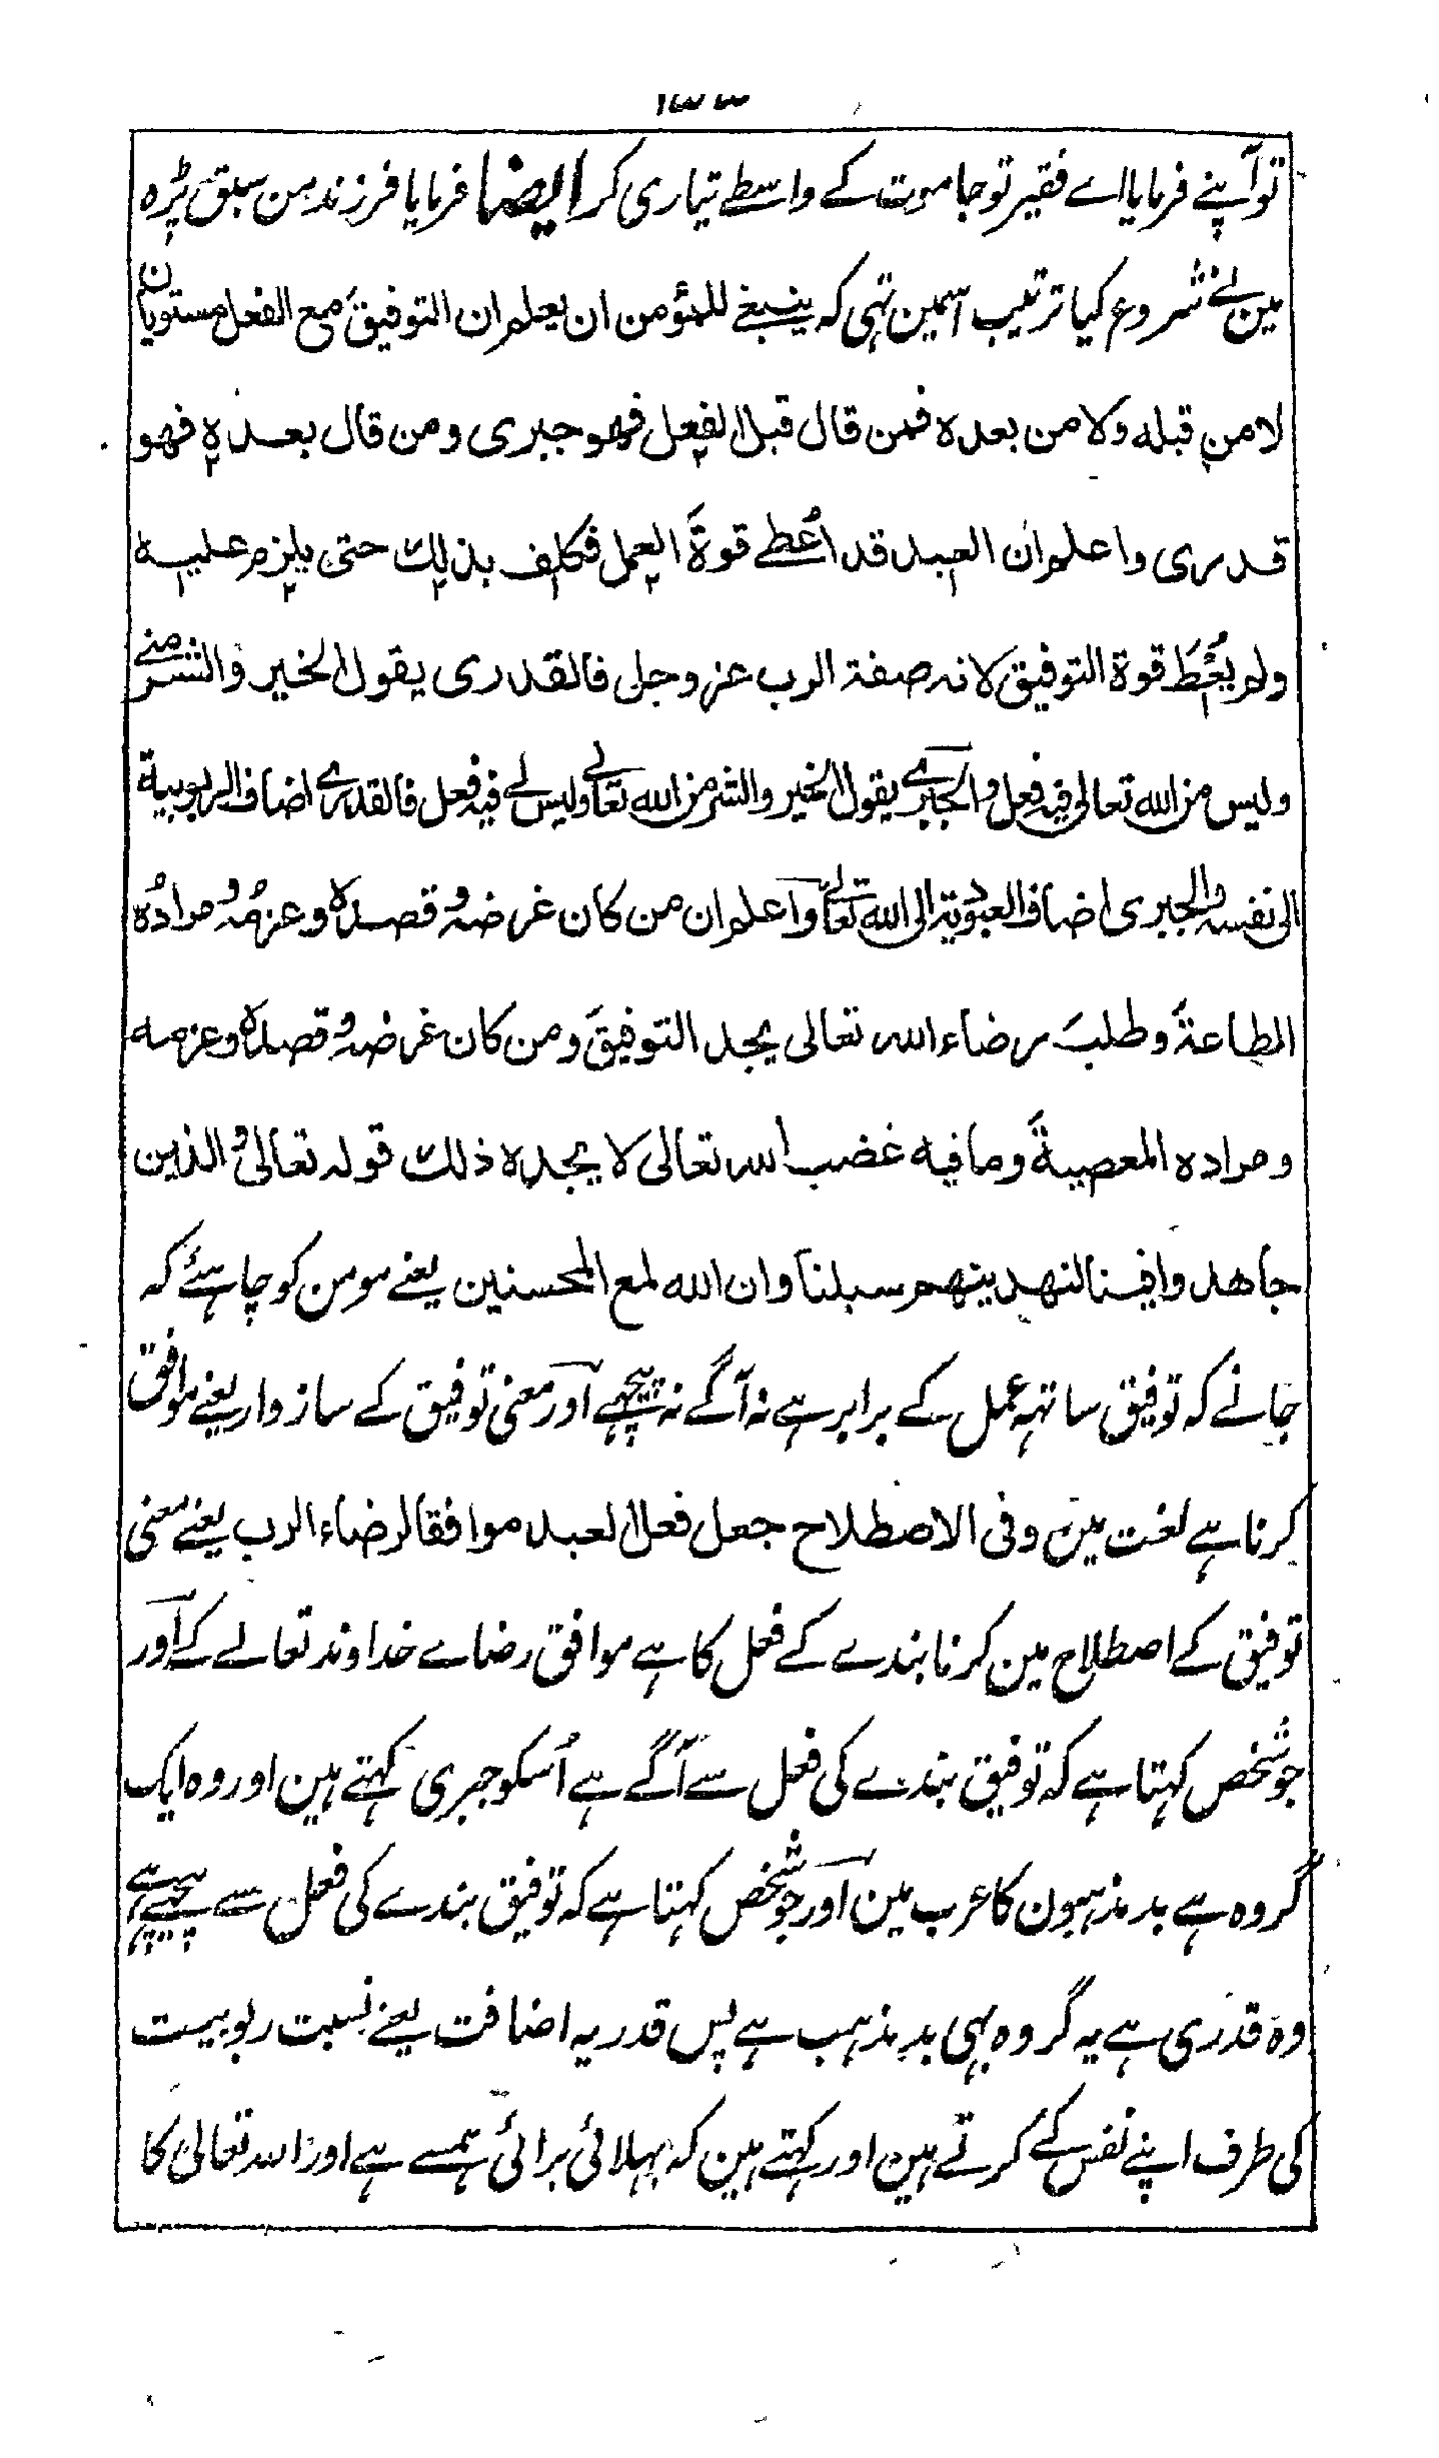 ۱۳۳
تو آپنے فرمایا اے فقیر تو جا موت کے واسطے تیاری کر ایضا فرمایا فرزند من سبق پڑہ
مین نے شروع کیا ترتیب اسمین تہی کہ ینبغے للمؤمن ان یعلم ان التوفیقَ مع الفعل مستویان
لا من قبله ولا من بعده فمن قال قبل الفعل فهو جبری ومن قال بعده فهو
قدری واعلم ان العبد قد اُعطے قوةَ العمل فکلف بذلك حتی یلزم علیه
ولم یُعْطَ قوة التوفیق لانه صفة الرب عز وجل فالقدری یقول الخیر والشر منے
ولیس من الله تعالی فیه فعل والجبرے یقول الخیر والشر من الله تعالے ولیس لے فیه فعل فالقدرے اضاف الربوبیة
الی نفسه والجبری اضاف العبودیة الی الله تعالے واعلم ان من کان غرضهُ وقصدهُ وعزمهُ ومرادُه
الطاعةَ وطلبَ رضاء الله تعالی یجد التوفیقَ ومن کان غرضهُ وقصده وعزمه
ومراده المعصیةَ وما فیه غضب الله تعالی لا یجده ذلك قوله تعالی والذین
جاهدوا فینا لنهدینهم سبلنا وان الله لمع المحسنین یعنے مومن کو چاہئے کہ
جانے کہ توفیق ساتہہ عمل کے برابر ہے نہ آگے نہ پیچہے اور معنی توفیق کے سازوار یعنے موافق
کرنا ہے لغت مین وفی الاصطلاح جعل فعل العبد موافقا لرضاء الرب یعنے معنی
توفیق کے اصطلاح مین کرنا بندے کے فعل کا ہے موافق رضاے خداوند تعالے کے اور
جو شخص کہتا ہے کہ توفیق بندے کی فعل سے آگے ہے اُسکو جبری کہتے ہین اور وہ ایک
گروہ ہے بد مذہبون کا عرب مین اور جو شخص کہتا ہے کہ توفیق بندے کی فعل سے پیچہے ہے
وہ قدری ہے یہ گروہ بہی بد مذہب ہے پس قدریہ اضافت یعنے نسبت ربوبیت
کی طرف اپنے نفس کے کرتے ہین اور کہتے ہین کہ بہلائی برائی ہمسے ہے اور اللہ تعالیٰ کا